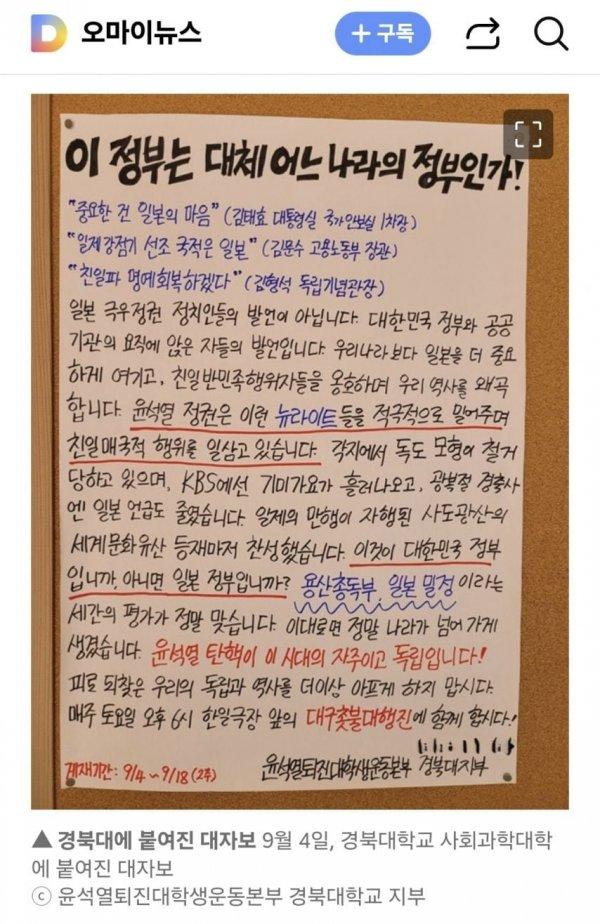 오마이뉴스
+ 구독
이 정부는 대체 어느 나라의 정부인가!
"중요한 건 일본의 마음" (김태효 대통령실 국가안보실 1차장)
"일제강점기 선조 국적은 일본" (김문수 고용노동부 장관)
"친일파 명예회복하겠다" (김형석 독립기념관장)
일본 극우정권 정치인들의 발언이 아닙니다. 대한민국 정부와 공공
기관의 요직에 앉은 자들의 발언입니다. 우리나라보다 일본을 더 중요
하게 여기고, 친일반민족행위자들을 옹호하며 우리 역사를 왜곡
합니다. 윤석열 정권은 이런 뉴라이트들을 적극적으로 밀어주며
친일매국적 행위를 일삼고 있습니다. 각지에서 독도 모형이 철거
당하고 있으며, KBS에선 기미가요가 흘러나오고, 광복절 경축사
엔 일본 언급도 줄였습니다. 일제의 만행이 자행된 사도광산의
세계문화유산 등재마저 찬성했습니다. 이것이 대한민국 정부
입니까, 아니면 일본 정부입니까? 용산총독부, 일본 밀정 이라는
세간의 평가가 정말 맞습니다. 이대로면 정말 나라가 넘어 가게
생겼습니다. 윤석열 탄핵이 이 시대의 자주이고 독립입니다!
피로 되찾은 우리의 독립과 역사를 더이상 아프게 하지 맙시다.
매주 토요일 오후 6시 한일극장 앞의 대구촛불대행진에 함께 합시다!
게재기간: 9/4 ~ 9/18 (2주)
윤석열퇴진대학생운동본부 경북대지부
▲ 경북대에 붙여진 대자보 9월 4일, 경북대학교 사회과학대학
에 붙여진 대자보
ⓒ 윤석열퇴진대학생운동본부 경북대학교 지부